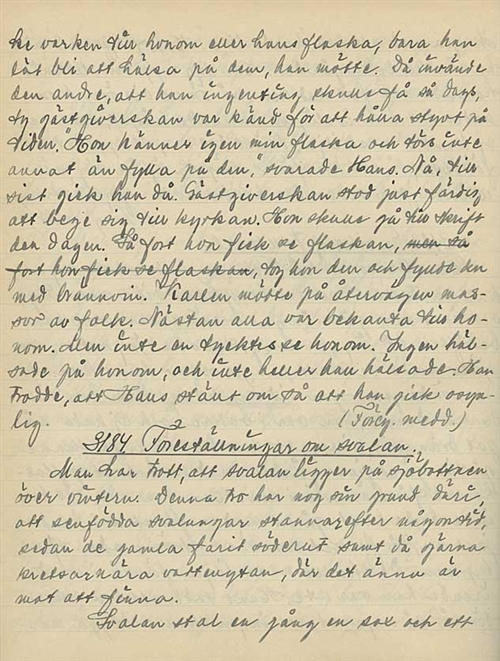 ke varken till honom eller hans flaska, bara han
lät bli att hälsa på dem, han mötte. Då invände
den andre, att han ingenting skulle få så dags,
ty gästgiverskan var känd för att hålla styvt på
tiden. "Hon känner igen min flaska och törs inte
annat än fylla på den," svarade Hans. Nå, till
sist gick han då. Gästgiverskan stod just färdig
att bege sig till kyrkan. Hon skulle gå till skrift
den dagen. Så fort hon fick se flaskan, men så
fort hon fick se flaskan, tog hon den och fyllde den
med brännvin. Karlen mötte på återvägen mas-
sor av folk. Nästan alla var bekanta till ho-
nom. Men inte en tycktes se honom. Ingen häl-
sade på honom, och inte heller han hälsade. Han
trodde, att Hans ställt om så att han gick osyn-
lig. (Föreg. medd.)
3184 Föreställningar om svalan.
Man har trott, att svalan ligger på sjöbottnen
över vintern. Denna tro har nog sin grund däri,
att senfödda svalungar stannar efter någon tid,
sedan de gamla farit söderut samt då gärna
kretsar nära vattenytan, där det ännu är
mat att finna.
Svalan stal en gång en sax och ett